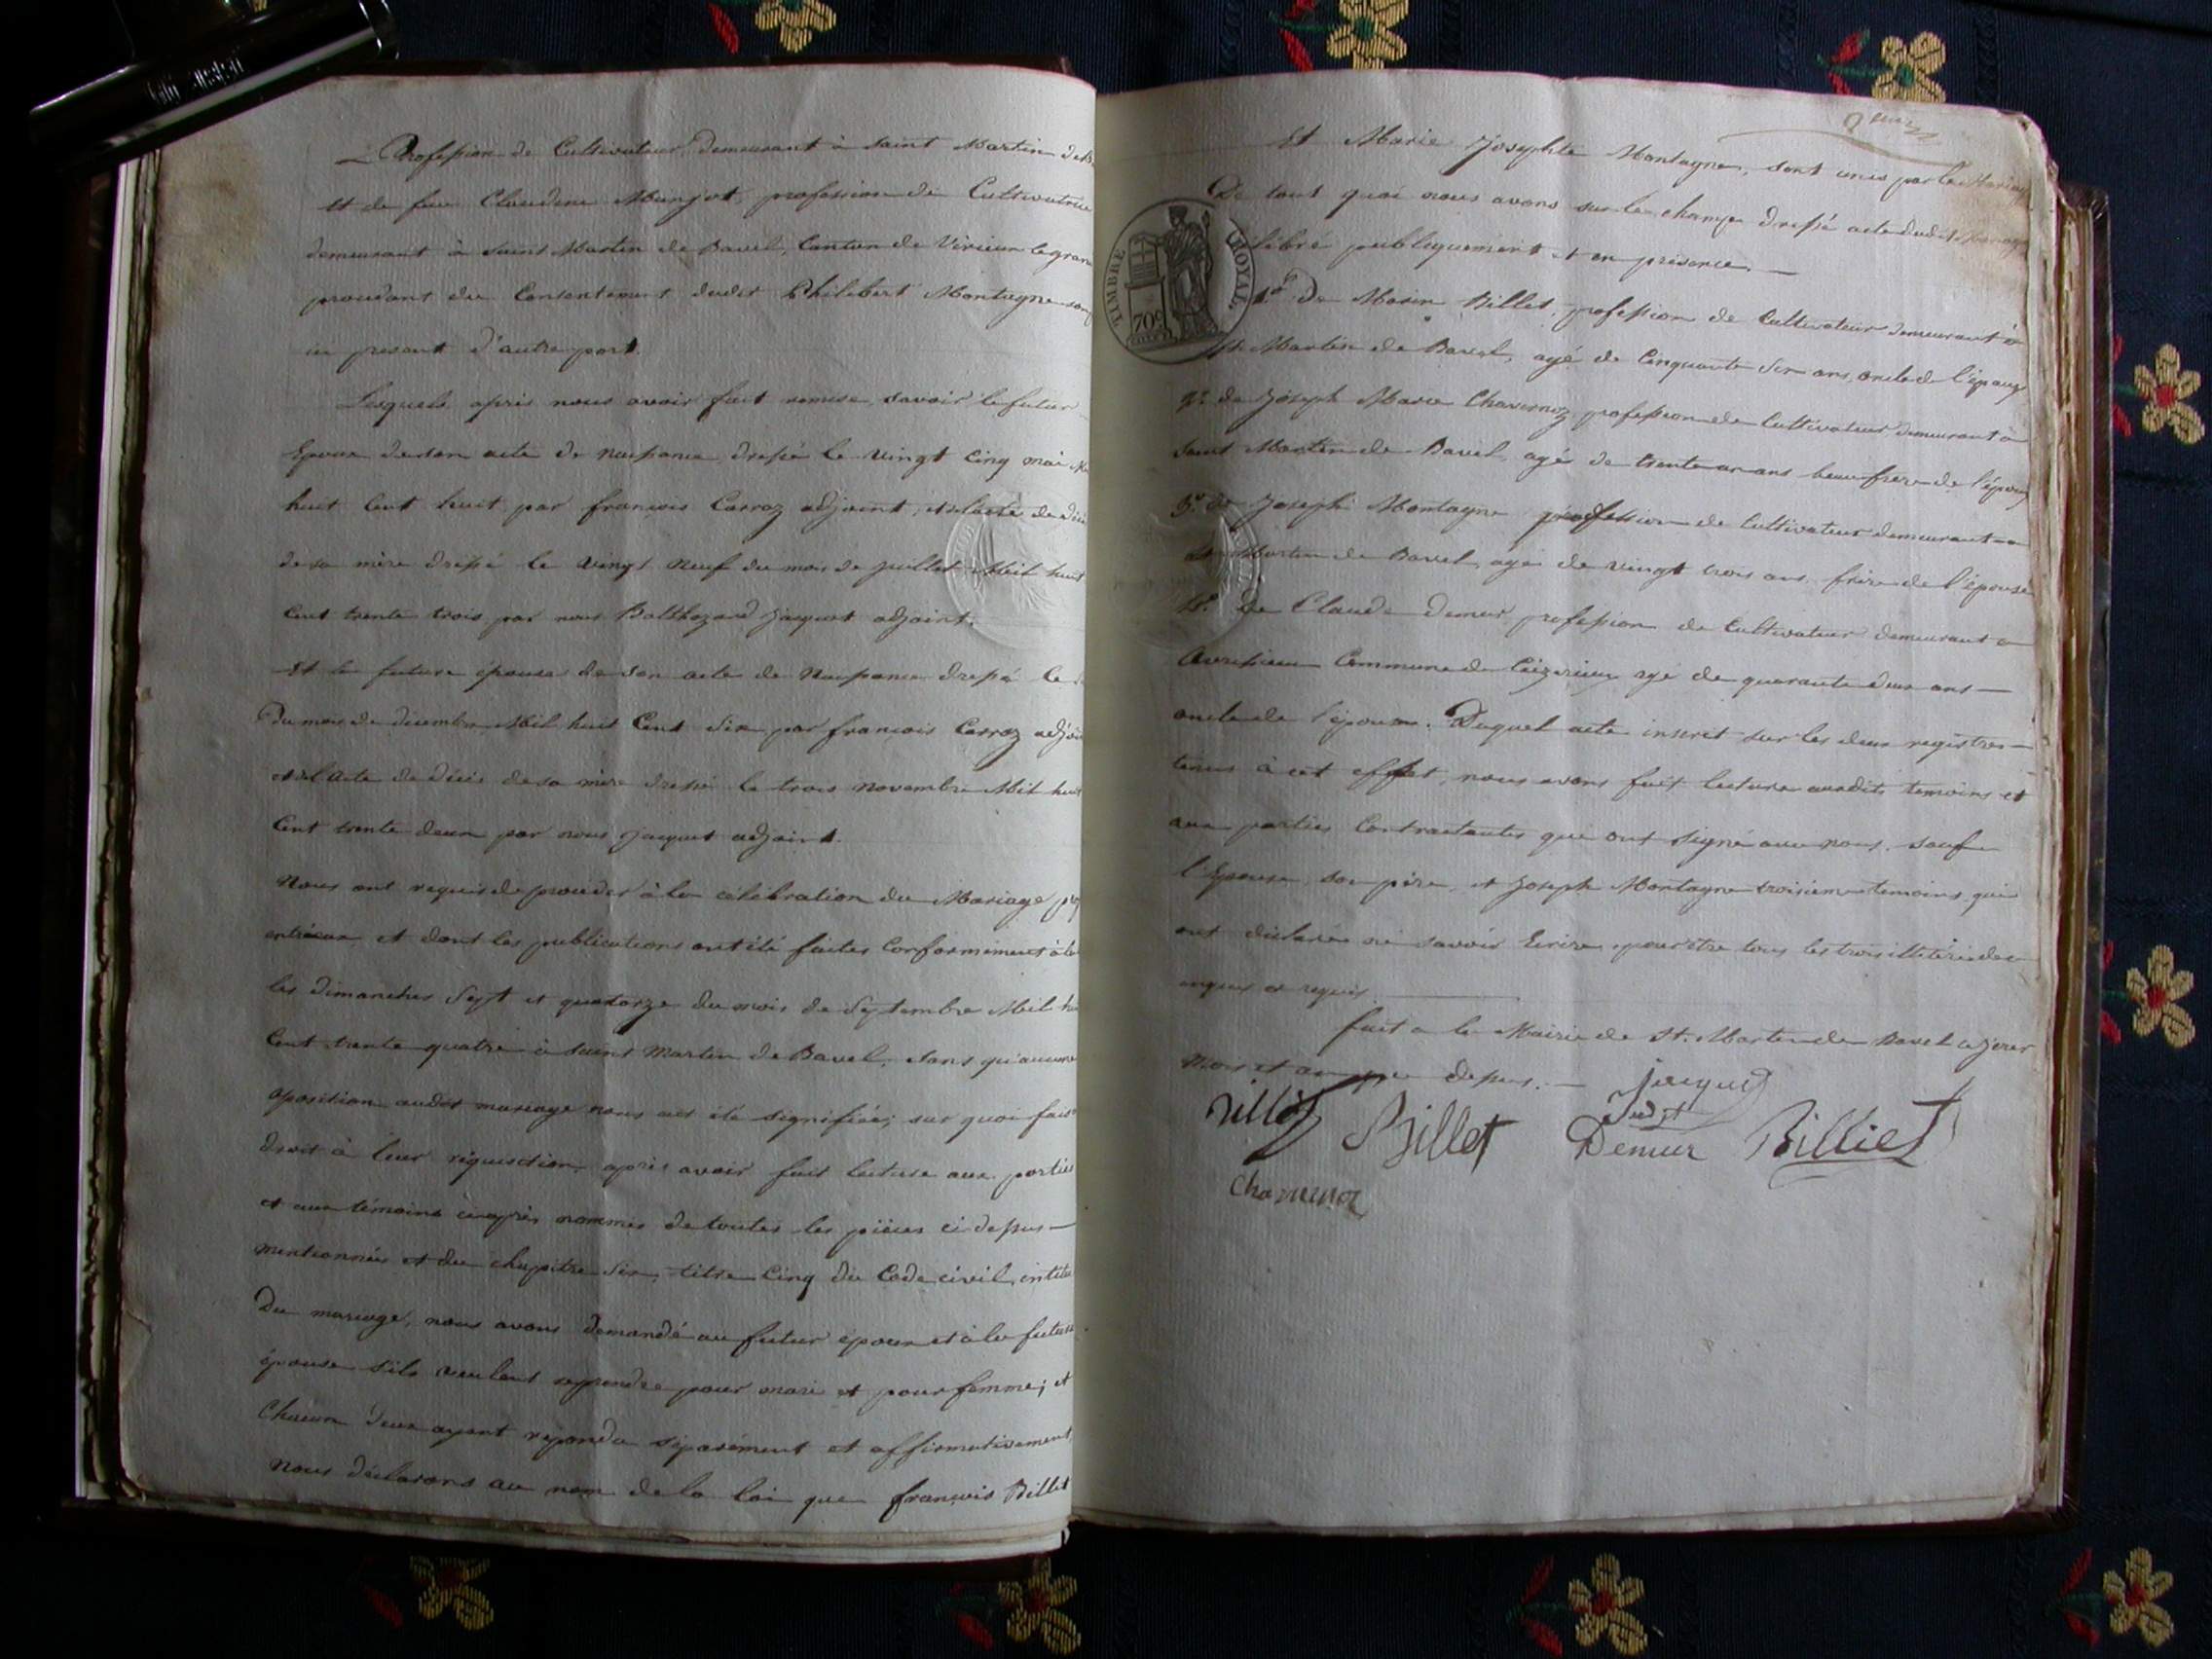 Profession de Cultivateur demeurant à Saint Martin de B
et de feue Claudine Munjot, profession de Cultivatrice
demeurant à Saint Martin de Bavel, Canton de Virieu le grand
procédant du Consentement dudit Philibert Montagne son
ici présent d'autre part.
Lesquels après nous avoir fait remise, savoir le futur
Epoux de son acte de Naissance dressé le vingt Cinq mai M
huit Cent huit par françois Carraz adjoint, et de l'acte de décè
de sa mère dressé le vingt neuf du mois de juillet Mil huit
Cent trente trois par nous Balthazard Jacquet adjoint.
Et la future épouse de son acte de Naissance dressé le
Du mois de décembre Mil huit Cent dix par françois Carraz adjoi
et de l'Acte de décès de sa mère dressé le trois novembre Mil huit
Cent trente deux par nous Jacquet adjoint.
Nous ont requis de procéder à la célébration du Mariage proj
entr'eux et dont les publications ont été faites Conformément à la
les dimanches Sept et quatorze du mois de Septembre Mil hui
Cent trente quatre à Saint Martin de Bavel, Sans qu'aucune
oposition audit mariage nous ait été signifiée; sur quoi fais
droit à leur réquisition, après avoir fait lecture aux parties
et aux témoins ci après nommés de toutes les pièces ci dessus
mentionnées et du chapitre Six, titre Cinq du Code civil, intitu
Du mariage, nous avons demandé au futur époux et à la future
épouse s'ils veulent se prendre pour mari et pour femme; et
Chacun d'eux ayant repondu séparément et affirmativement
nous déclarons au nom de la loi que françois Billet
Et Marie Josephte Montagne, sont unis par le Mariage
De tout quoi nous avons sur le champ dressé acte dudit Mariage
célébré publiquement et en présence.
TIMBRE ROYAL
70c
1.o De Marin Billet, profession de Cultivateur demeurant à
St. Martin de Bavel, agé de Cinquante Six ans, oncle de l'époux
2.o de Joseph Marie Chavernoz profession de Cultivateur demeurant à
Saint Martin de Bavel, agé de trente un ans beau frere de l'époux
3.o de Joseph Montagne profession de Cultivateur demeurant à
St. Martin de Bavel, agé de vingt trois ans, frère de l'épouse
4.o De Claude Demeur profession de Cultivateur demeurant à
Avrissieu Commune de Ceizerieu agé de quarante deux ans
oncle de l'épouse. Duquel acte inscrit sur les deux registres
tenus à cet effet, nous avons fait lecture auxdits temoins et
aux parties Contractantes qui ont signé avec nous, sauf
l'Epouse, son père, et Joseph Montagne troisieme temoins, qui
ont déclarés ne savoir Ecrire, pour être tous les trois illitérés de ce
enquis et requis.
fait a la Mairie de St. Martin de Bavel ce jour
Mois et an que dessus.
Jacquet
adjt
Billet Demeur Billiet
Chavernoz